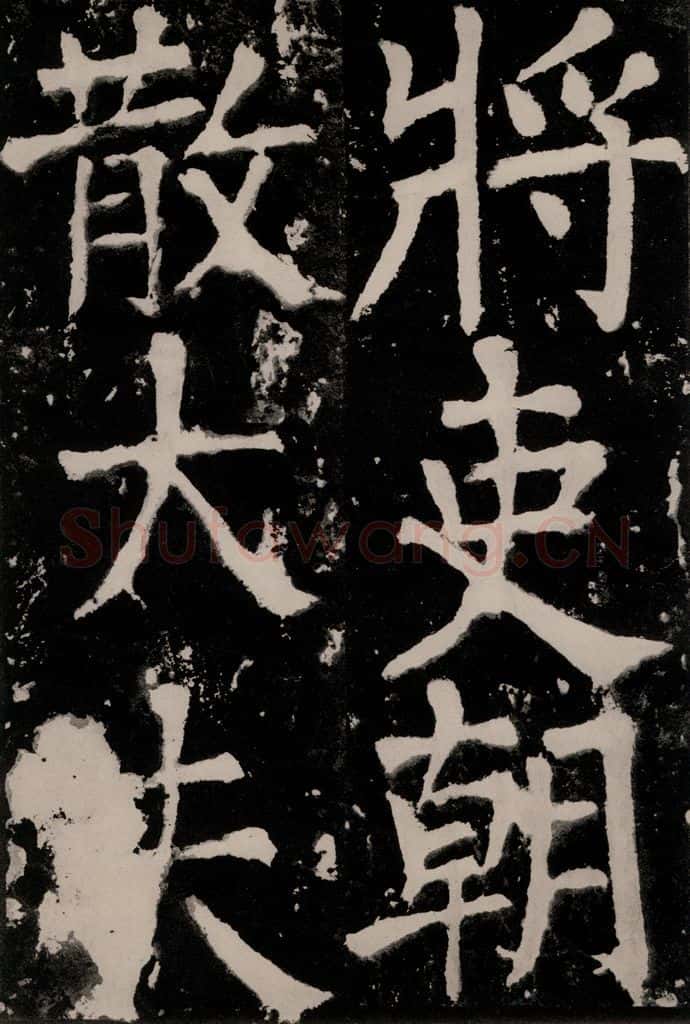 將吏朝
散大夫
Shufawang.CN